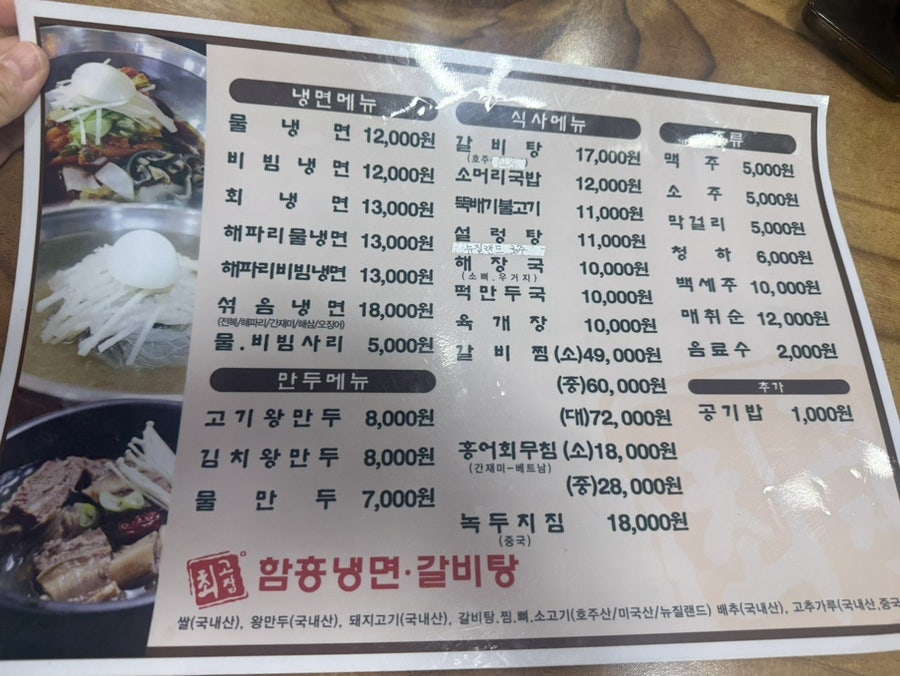 냉면메뉴
물냉면 12,000원
비빔냉면 12,000원
회냉면 13,000원
해파리물냉면 13,000원
해파리비빔냉면 13,000원
섞음냉면 18,000원
(전복/해파리/간재미/해삼/오징어)
물.비빔사리 5,000원
만두메뉴
고기왕만두 8,000원
김치왕만두 8,000원
물만두 7,000원
식사메뉴
갈비탕 17,000원
(호주
소머리국밥 12,000원
뚝배기불고기 11,000원
설렁탕 11,000원
해장국 10,000원
(소뼈.우거지)
떡만두국 10,000원
육개장 10,000원
갈비찜 (소)49,000원
(중)60,000원
(대)72,000원
홍어회무침 (소)18,000원
(간재미-베트남)
(중)28,000원
녹두지짐 18,000원
(중국)
주류
맥주 5,000원
소주 5,000원
막걸리 5,000원
청하 6,000원
백세주 10,000원
매취순 12,000원
음료수 2,000원
추가
공기밥 1,000원
최고집 함흥냉면·갈비탕
쌀(국내산), 왕만두(국내산), 돼지고기(국내산), 갈비탕.찜.뼈.소고기(호주산/미국산/뉴질랜드) 배추(국내산), 고추가루(국내산,중국